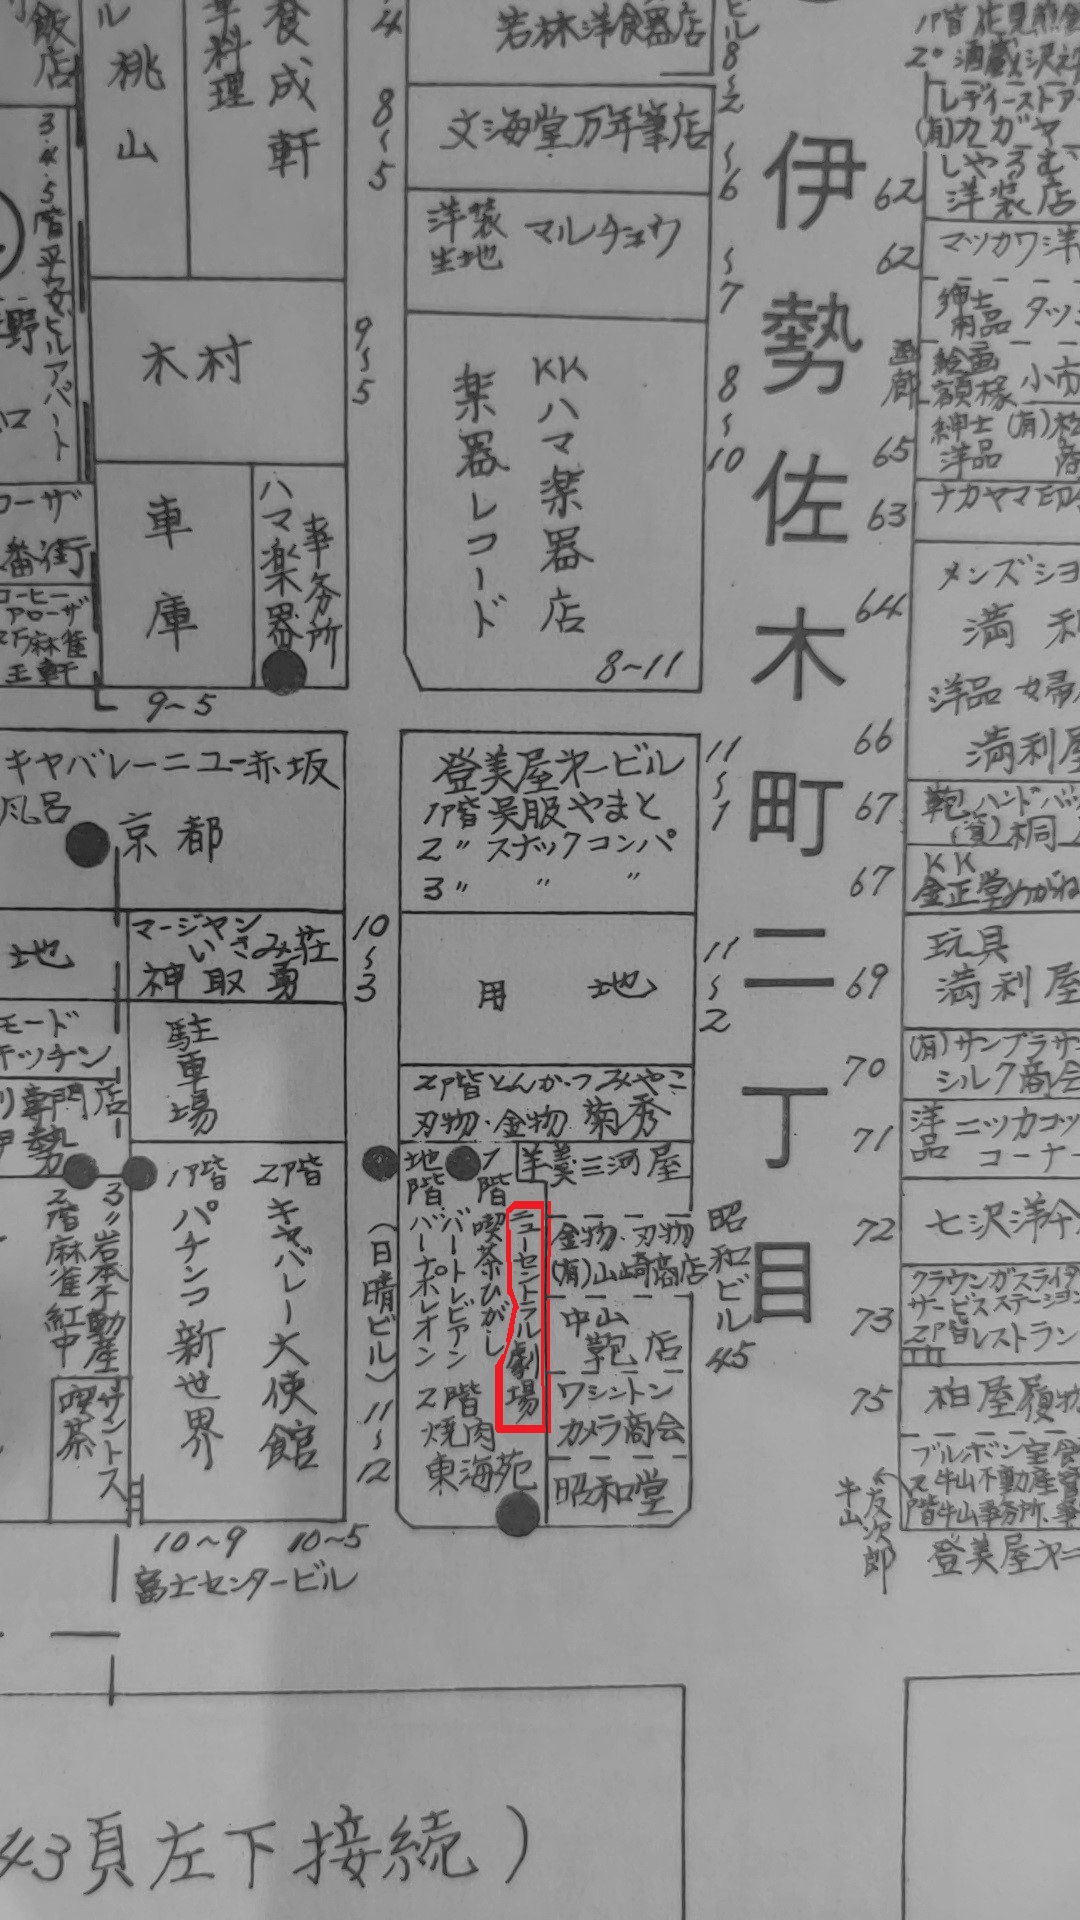 飯店
桃山
料理
養成軒
4
8~5
3.4.5階平安ビルアパート
木村
9~5
車庫
ハマ楽器
事務所
9~5
若林洋食器店
文海堂万年筆店
洋装
生地
マルチョウ
KKハマ楽器店
楽器レコード
8~11
ビル8~2
~6
~7
8~10
伊勢佐木町二丁目
レディースト
(有)カガヤ
しやるむ
洋装店
62
マツカワ洋
62
紳士
用品
タッ
画廊
絵画
額椽
小市
65
紳士
洋品
(有)松
63
ナカヤマ印
メンズショ
64
満利
洋品
満利屋
66
67
鞄ハンドバッ
(資)桐
67
KK
金正堂めがね
玩具
満利屋
69
(有)サンプラザ
シルク商会
70
洋品
ニッカコッ
コーナー
71
七沢洋
72
クラウンガスライタ
サービスステーション
2階レストラン
73
柏屋履物
75
ブルボン
牛山不動産
階牛山事務所
牛山友次郎
登美屋
ローザ
番街
コーヒー
アローザ
2F麻雀
王軒
キャバレーニュー赤坂
風呂
京都
地
マージャン
いさみ荘
神取勇
10~3
モード
キッチン
駐車場
専門店
伊勢
1階
パチンコ新世界
2階
キャバレー大使館
3〃岩本不動産
2階麻雀紅中
喫茶
サントス
10~9
10~5
富士センタービル
登美屋第一ビル
1階呉服やまと
2〃スナックコンパ
3〃 〃 〃
11~1
用地
11~2
2階とんかつみやこ
刃物.金物 菊秀
羊羹三河屋
地階
バーナポレオン
バートレビアン
1階
喫茶ひがし
ニューセントラル劇場
2階
焼肉
東海苑
(日晴ビル)
11~12
金物.刃物
(有)山崎商店
中山
鞄店
ワシントン
カメラ商会
昭和堂
昭和ビル
45
43頁左下接続)